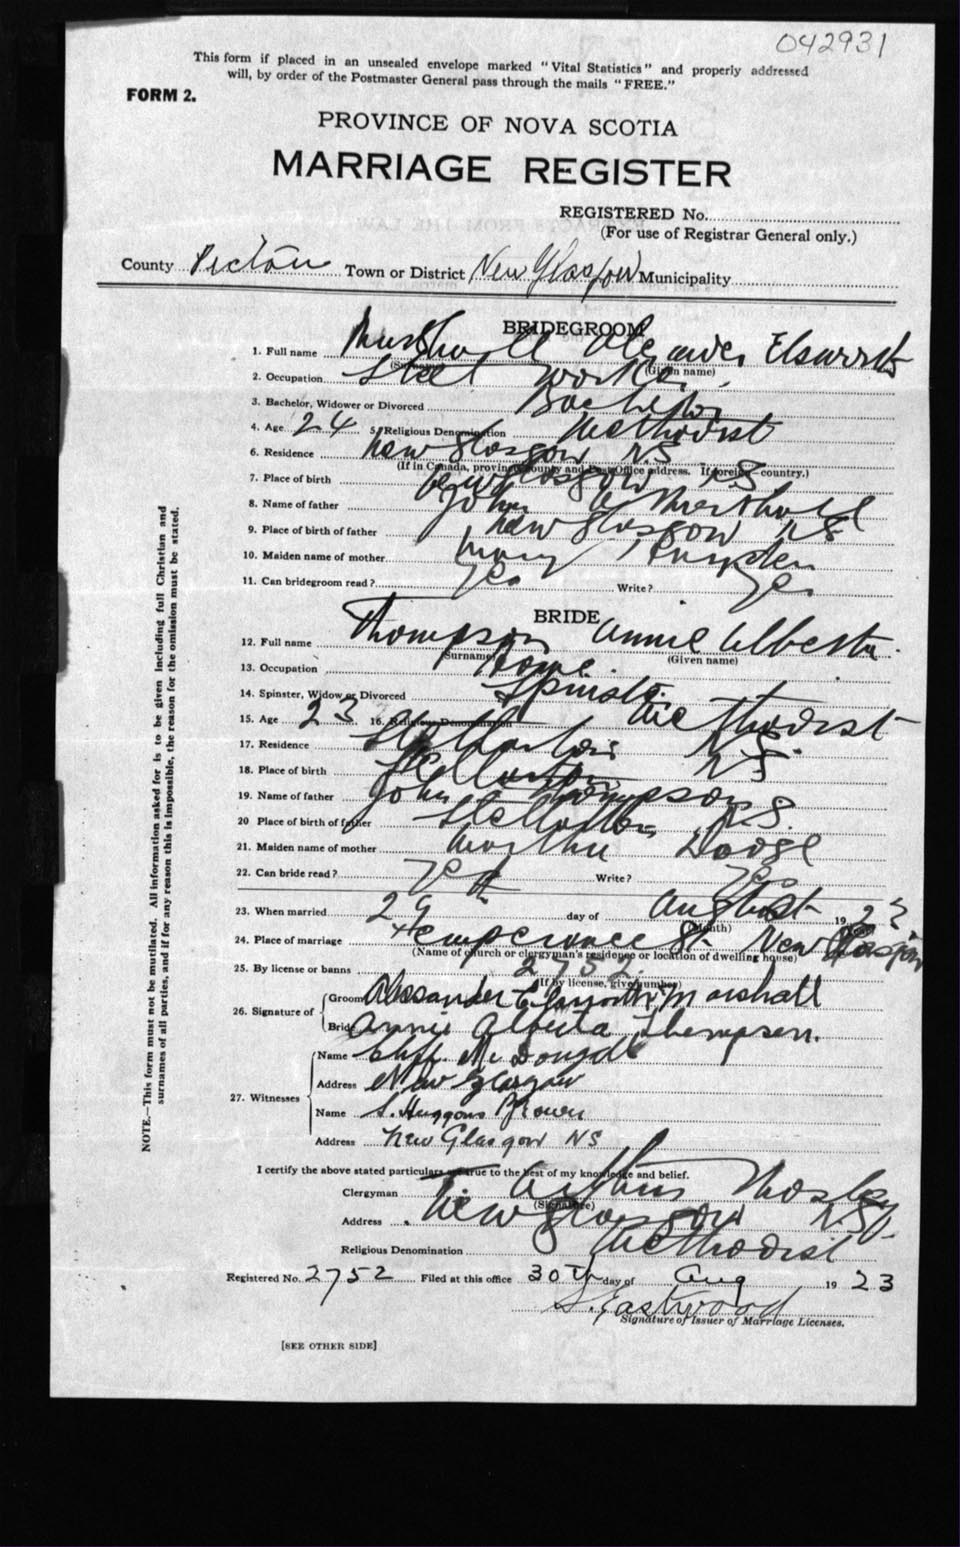 042931
This form if placed in an unsealed envelope marked "Vital Statistics" and properly addressed
will, by order of the Postmaster General pass through the mails "FREE."
FORM 2.
PROVINCE OF NOVA SCOTIA
MARRIAGE REGISTER
REGISTERED No.
(For use of Registrar General only.)
County Pictou Town or District New Glasgow Municipality
BRIDEGROOM
1. Full name Marshall Alexander Elsworth
(Surname) (Given name)
2. Occupation Steel worker
3. Bachelor, Widower or Divorced Bachelor
4. Age 24 5. Religious Denomination Methodist
6. Residence New Glasgow NS
(If in Canada, province, county and Post Office address. If foreign—country.)
7. Place of birth New Glasgow NS
8. Name of father John Marshall
9. Place of birth of father New Glasgow NS
10. Maiden name of mother Mary
11. Can bridegroom read? Yes Write? Yes
BRIDE
12. Full name Thompson Annie Alberta
(Surname) (Given name)
13. Occupation Home.
14. Spinster, Widow or Divorced Spinster
15. Age 23 16. Religious Denomination Methodist
17. Residence Stellarton NS.
18. Place of birth Stellarton NS
19. Name of father John Thompson
20 Place of birth of father Stellarton NS.
21. Maiden name of mother Martha Dodge
22. Can bride read? Yes Write? Yes
23. When married 29th day of August 1923
(Month)
24. Place of marriage Temperance St. New Glasgow
(Name of church or clergyman's residence or location of dwelling house)
25. By license or banns 2752.
(If by license, give number)
26. Signature of Groom Alexander Elsworth Marshall
Bride Annie Alberta Thompson.
27. Witnesses Name Cliff. McDougall
Address New Glasgow
Name S. Huggons Brown
Address New Glasgow NS
I certify the above stated particulars are true to the best of my knowledge and belief.
Clergyman Arthur
(Signature)
Address New Glasgow NS
Religious Denomination Methodist
Registered No. 2752 Filed at this office 30th day of Aug 1923
S. Eastwood
Signature of Issuer of Marriage Licenses.
[SEE OTHER SIDE]
NOTE.—This form must not be mutilated. All information asked for is to be given including full Christian and
surnames of all parties, and if for any reason this is impossible, the reason for the omission must be stated.